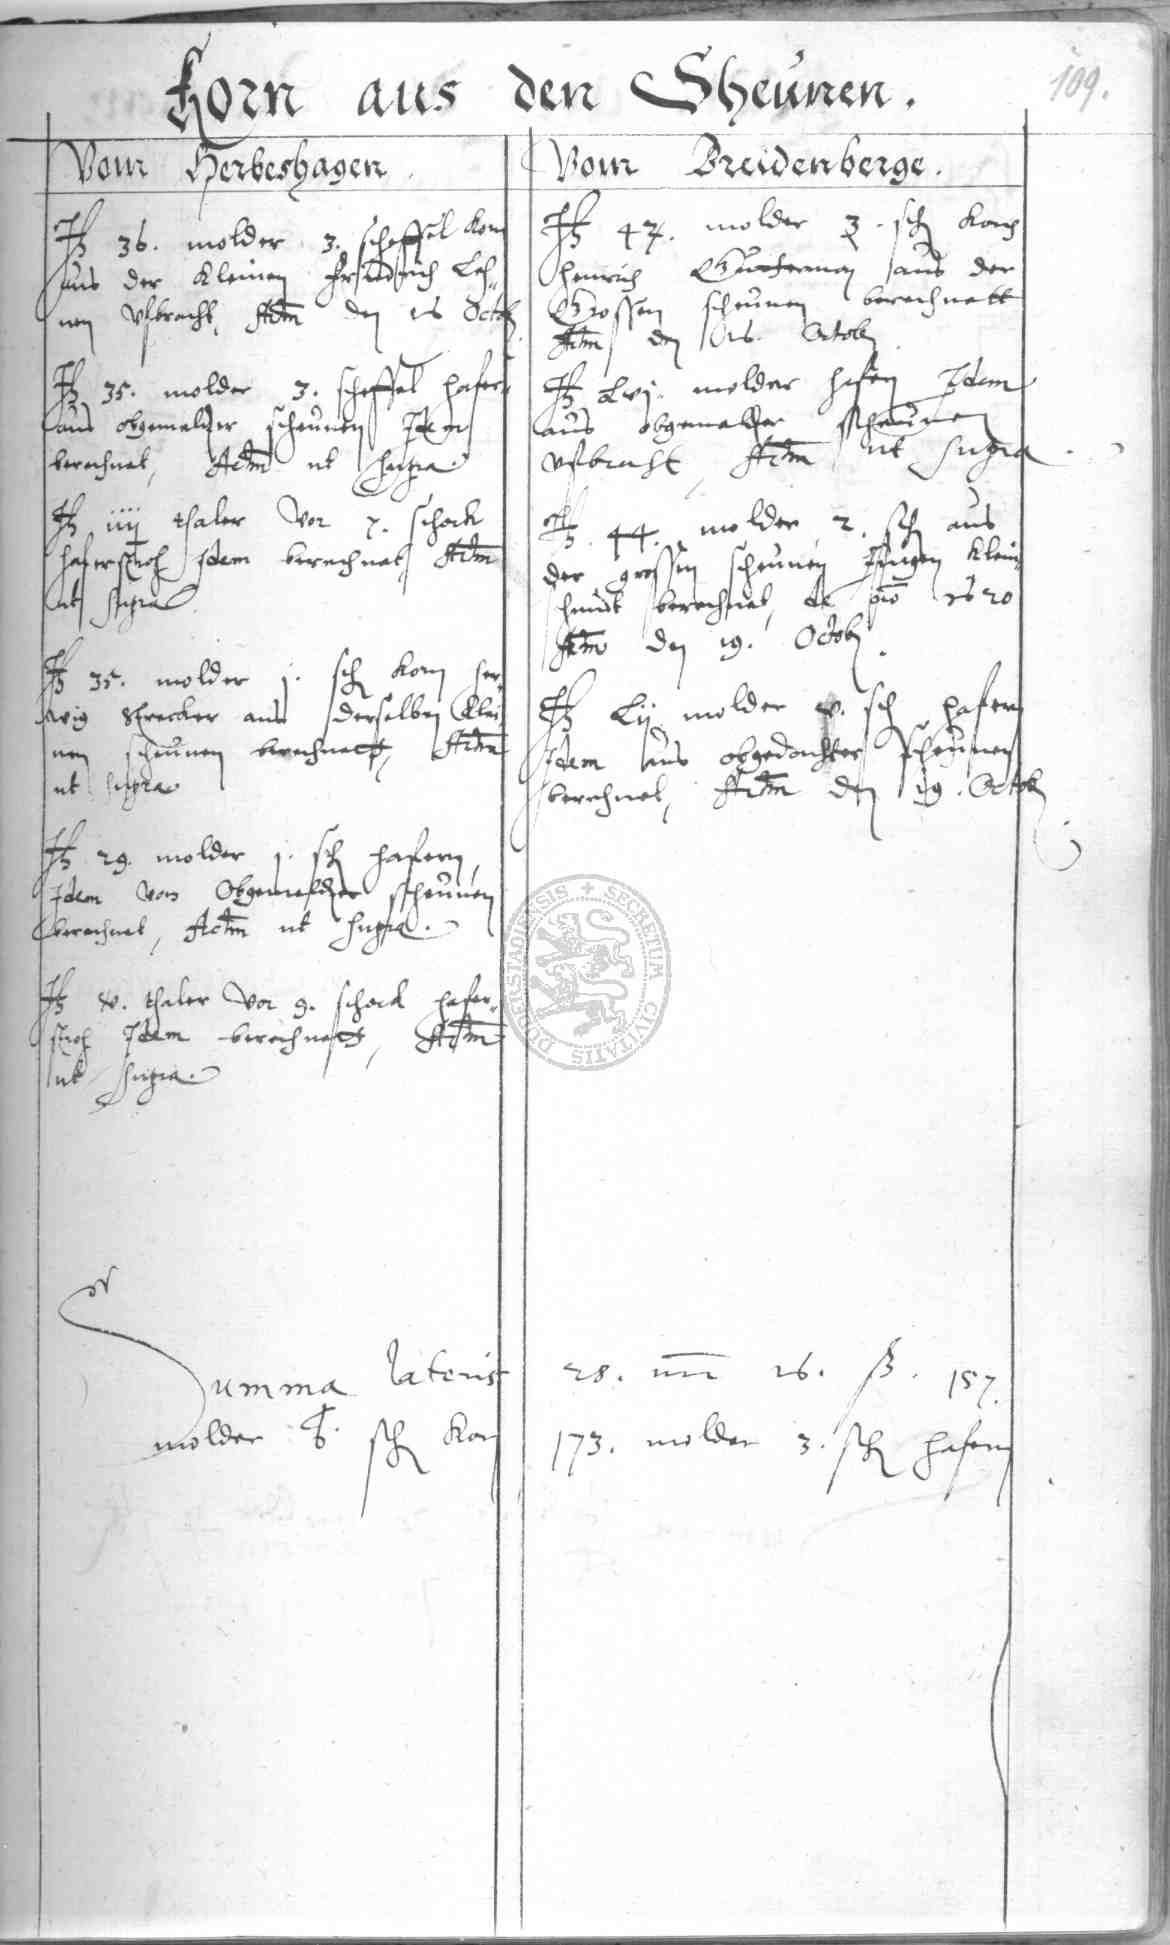 109.
Korn aus den Sheunen.
Vom Herbeshagen.
It 36. molder 3. scheffel Korn
aus der Kleinen Friedrich Leh-
nen vfbracht, Actm den 16 Octob
It 35. molder 3. scheffel hafer
aus obgemelter scheunen Idem
berechnet, Actm ut supra.
It iiij thaler vor 7. schock
haferstroh Idem berechnet Actm
ut supra
It 35. molder j. sch Korn
Strecker aus derselben Klei
nen scheunen berechnett, Actm
ut supra
It 29. molder j. sch hafern,
Idem von Obgemelter scheunen
berechnet, Actm ut supra.
It v. thaler vor 9. schock hafer-
stroh Idem berechnett, Actm
ut supra.
Vom Breidenberge.
It 47. molder 3. sch Korn
Henrich aus der
Grossen scheunen berechnett
Actm den 16. Octob
It Lvj. molder hafern Idem
aus obgemelter scheunen
vfbracht, Actm ut supra
It 44. molder 2. sch aus
der grossen scheunen Klein
berechnet, de año 1620
Actm den 19. Octob.
It Lij molder v. sch hafern
Idem aus obgedachter scheunen
berechnet, Actm den 19. Octob
Summa lateris 28. 16. ß. 157.
molder sch Korn 173. molder 3. sch hafern
SECRETUM CIVITATIS DUDERSTADIENSIS